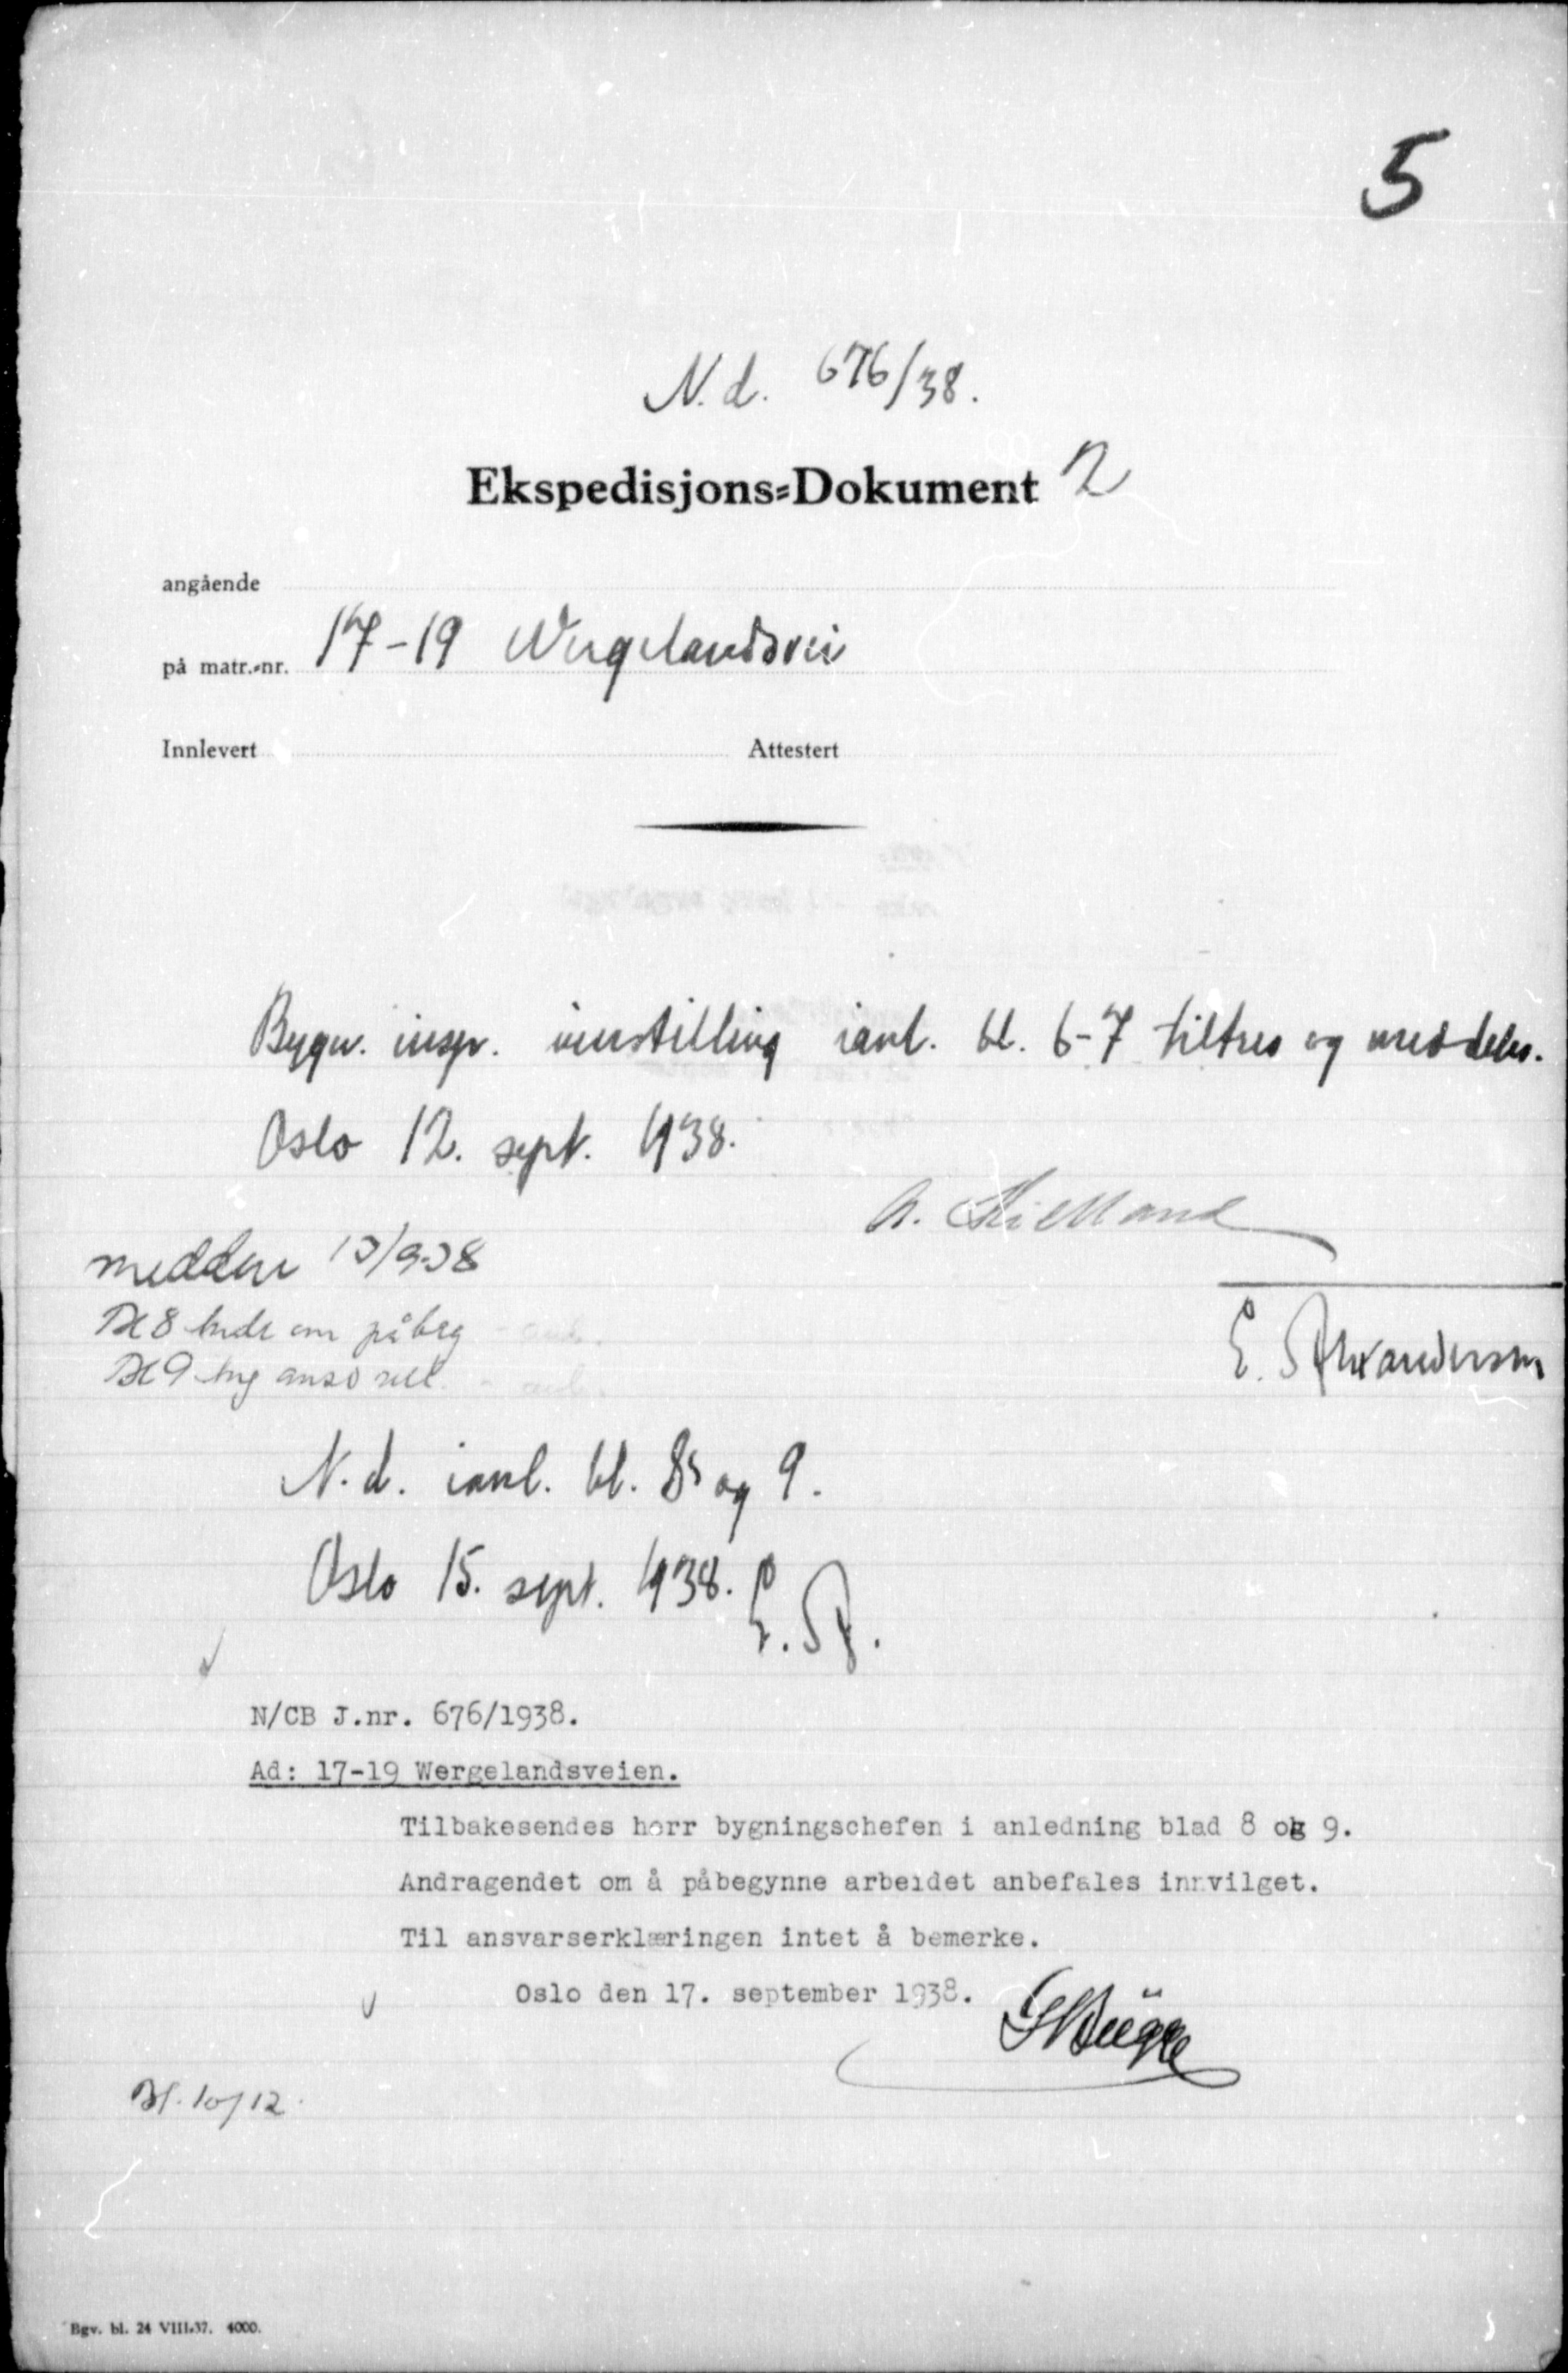 5
N.d. 676/38.
Ekspedisjons-Dokument 2
angående
på matr.-nr. 17-19 Wergelandsvei
Innlevert Attestert
Bygn. insp. innstilling ianl. bl. 6-7 tiltres og meddeles.
Oslo 12. sept. 1938.
A. Kielland
meddelt 13/9-38
E. Alexandersen
Bl 8 om påbeg
Bl 9
N.d. ianl. bl. 8 og 9.
Oslo 15. sept. 1938.
N/CB J.nr. 676/1938.
Ad: 17-19 Wergelandsveien.
Tilbakesendes herr bygningschefen i anledning blad 8 og 9.
Andragendet om å påbegynne arbeidet anbefales innvilget.
Til ansvarserklæringen intet å bemerke.
Oslo den 17. september 1938.
Bl. 10/12.
Bgv. bl. 24 VIII.37. 4000.